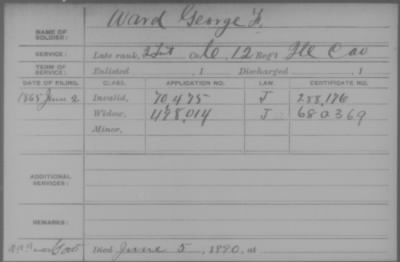 NAME OF SOLDIER: Ward George F.
SERVICE: Late rank, 2 Lut Co. C, 12 Reg't Ill Cav
TERM OF SERVICE: Enlisted , 1 Discharged , 1
DATE OF FILING. CLASS. APPLICATION NO. LAW. CERTIFICATE NO.
1865 June 2 Invalid, 70475 J 288,176
Widow, 498,014 J 680369
Minor,
ADDITIONAL SERVICES:
REMARKS:
Died June 5, 1890, at